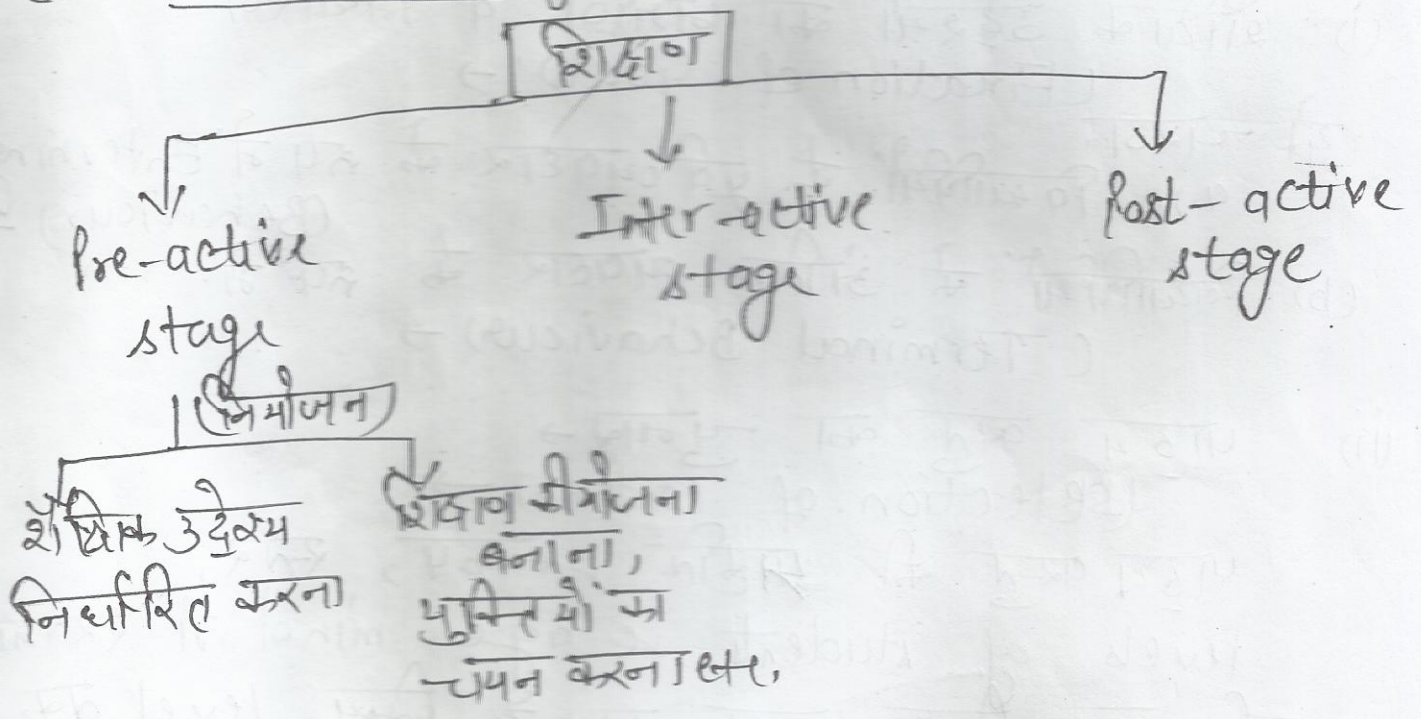 शिक्षण
Pre-active
stage
Inter-active
stage
Post-active
stage
(नियोजन)
शैक्षिक उद्देश्य
निर्धारित करना
शिक्षण की योजना
बनाना,
युक्तियों का
चयन करना etc.